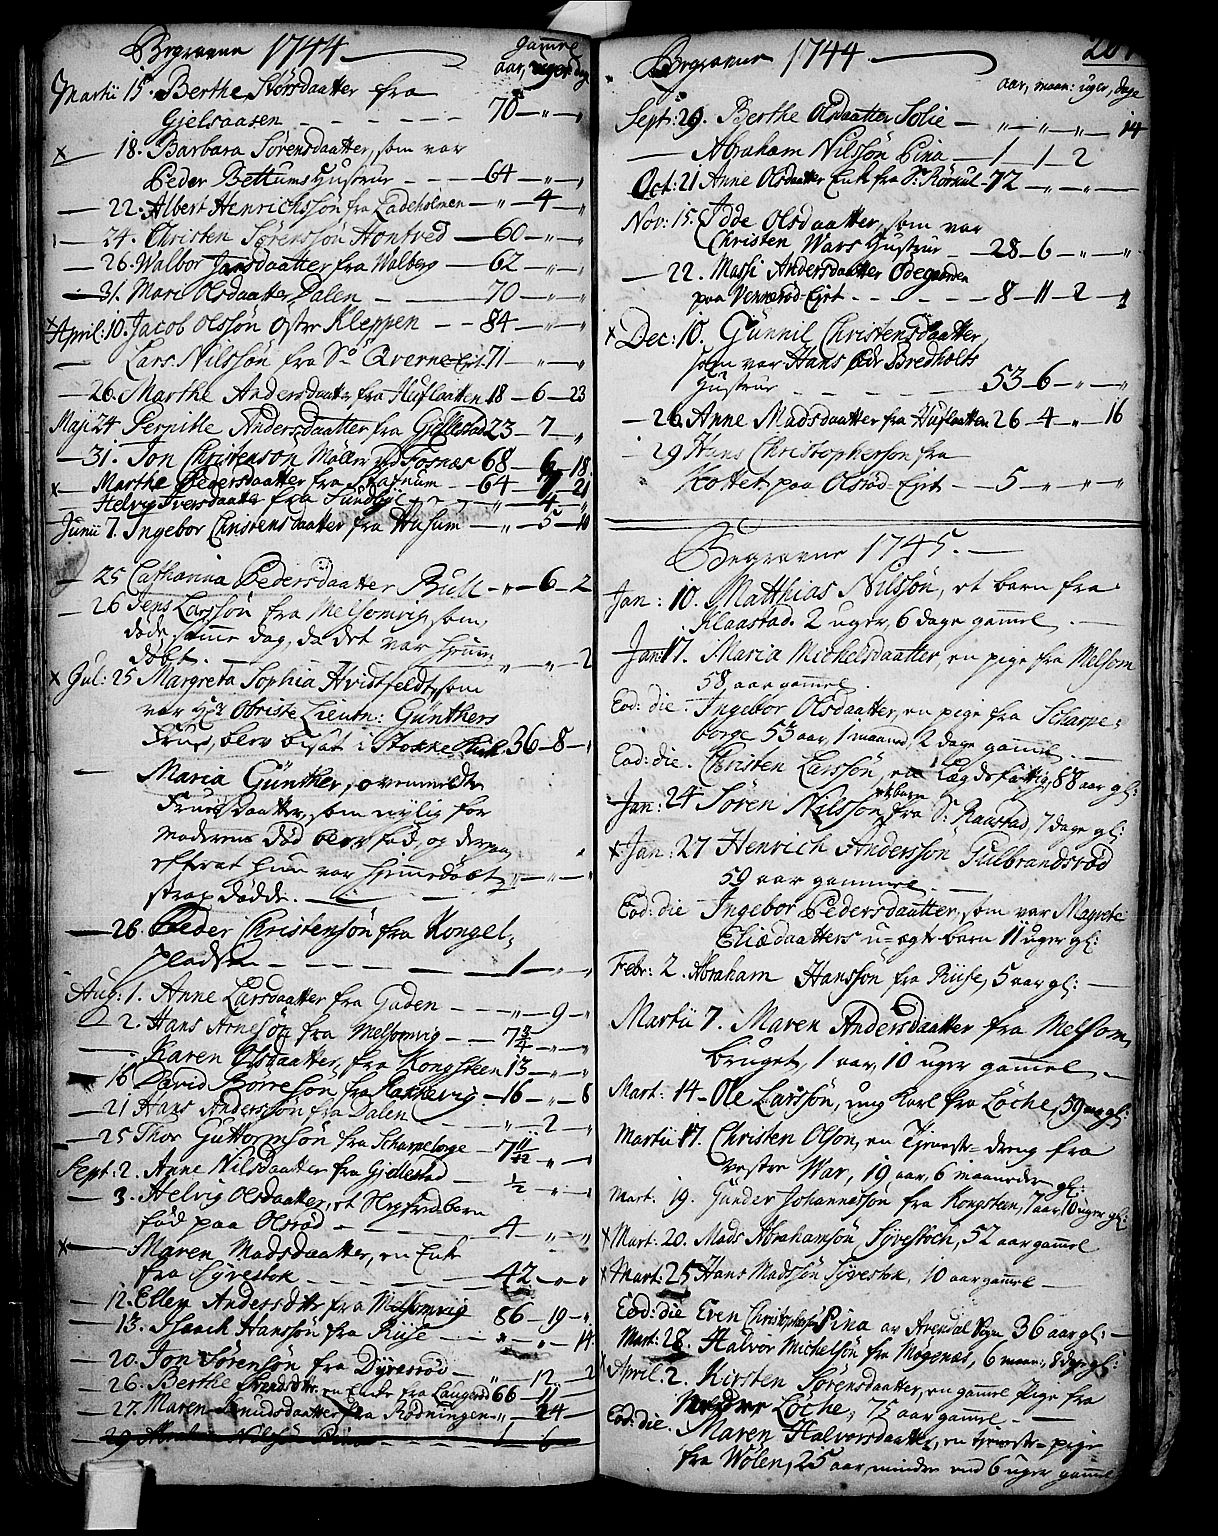 Begravne 1744
Gammel
aar, uger, dage
Martii 15. Berthe Størsdaatter fra
Gielsaasen 70 - " - "
18. Barbara Sørensdaatter, som var
Peder Bettums Hustrue 64 - " - "
22. Albert Henrichssøn fra Ladeholmen - " - 4 - "
24. Christen Sørenssøn Hontved 60 - " - "
26. Walbor Jansdaatter fra Walberg 62 - " - "
31. Mari Olsdaatter Dalen 70 - " - "
April: 10. Jacob Olssøn Østre Kleppen 84 - " - "
Lars Nilssøn fra Sø Qverne Eje: 71 - " - "
26. Marthe Andersdaatter fra Huflaatten 18 - 6 - 23
Maji 24 Pernille Andersdaatter fra Gjellestad 23 - 7 - "
31. Jon Christenson Møller ved Fosnæs 68 - 6 - 18
Marthe Pedersdaatter fra 64 - 21
Helvig Iversdaatter fra Sundbye " - 4 - "
Junii 7. Ingebor Christensdaatter fra Husum - " - 5 - 10
25 Catharina Pedersdaatter Bull - " - 6 - 2
26 Jens Larssøn fra Melsomvig, som
døde samme dag, da det var hjemme
døbt. " - " - 2
Jul: 25 Margreta Sophia Hvidtfeldt, som
var Hr Obriste Lieutn: Günthers
Frue, blev bisat i Stokke Kirke 36 - 8 - "
Maria Günther, ovenmeldte
Frues daatter, som nylig før
Moderens død blev fød, og derpaa
efterat hun var hjemedøbt
strax døde.
26. Peder Christensøn fra Kongel,
pladsen 1 - " - "
Aug: 1. Anne Larsdaatter fra Gaden - " - 9 - "
2. Hans Arnesøn fra Melsomvig 7 3/4 - " - "
Karen Olsdaatter, fra Kongsteen 13 - " - "
16 David fra Rakkevig 16 - " - 8
21 Hans Anderssøn fra Dalen - " - 2 - "
25 Thor Guttormsøn fra Scharpeborge 7 11/12 - " - "
Sept: 2. Anne Nilsdaatter fra Gjellestad 1/2 - " - "
3. Helvig Olsdaatter, et Slegfredbarn
fød paa Olsrød 4 - " - "
Maren Madsdaatter, en Enke
fra Syvestok 42 - " - "
12. Ellen Andersdtr fra Melsomvig 86 - 19 - "
13. Isaach Hanssøn fra Riise " - " - 14
20. Jon Sørensøn fra Dyresrød " - 12 - 2
26. Berthe en Enke fra Laugerød 66 - 11 - "
27. Maren Knudsdaatter fra Rødningen - " - 24 - "
29 Abraham Nilssøn Pina 1 6
Begravne 1744
aar, maan: uger, dage
Sept: 29. Berthe Olsdaatter Solie - " - " - " - 14
Abraham Nilssøn Pina 1 - 1 - 2
Oct: 21 Anne Olsdaatter Enke fra S: Rørkul 72 - " - " -
Nov: 15. Idde Olsdaatter, som var
Christen Wars Hustrue 28 - 6 - " - "
22. Massi Andersdaatter Ødegaarden
paa Vennerød Eje 8 - 11 - 2 - "
Dec: 10. Gunnil Christensdaatter,
som var Hans Bredholts
Hustrue 53 - 6 - " - "
26. Anne Madsdaatter fra Huflaatten 26 - 4 - " - 16
29 Hans Christopherson fra
Kottet paa Olsrød Eje 5 - " - " - "
Begravne 1745.
Jan: 10. Matthias Nilsøn, et barn fra
Klaastad. 2 uger, 6 dage gammel
Jan: 17. Maria Michelsdaatter, en pige fra Melsom
58 aar gammel.
Eod: die. Ingebor Olsdaatter, en pige fra Scharpe-
borge 53 aar, 1 maaned, 2 dage gammel
Eod: die. Christen Larssøn, en Lægdsfattig, 88 aar gl:
Jan: 24 Søren Nilssøn et barn fra S: Raastad, 7 dage gl:
Jan: 27 Henrich Andersson Gulbrandsrød
59 aar gammel.
Eod: die Ingebor Pedersdaatter, som var Magrete
Eliædaatters u-ægte barn 11 uger gl:
Febr: 2. Abraham Hansson fra Riise, 5 aar gl:
Martii 7. Maren Andersdaatter fra Melsom,
bruget, 1 aar, 10 uger gammel
Mart: 14 - Ole Larssøn, ung Karl fra Løche, 59 aar gl:
Martii 17. Christen Olson, en Tjeneste-dreng fra
vestre War, 19 aar, 6 maaneder gl:
Mart: 19. Gunder Johannessøn fra Kongsteen, 7 aar 10 uger gl:
Mart: 20. Mads Abrahamsøn Syvestoch, 52 aar gammel
Mart: 25 Hans Madssøn Syvestok, 10 aar gammel
Eod: die Even Christophersøn Pina av Arendal 36 aar gl:
Mart: 28. Halvor Michelsøn fra Mogenæs, 6 maan:, 8 dage gl:
April. 2. Kirsten Sørensdaatter, en gammel Pige fra
Nedre Løche, 75 aar gammel
Eod: die. Maren Halvorsdaatter, en tjeneste-pige
fra Wølen, 25 aar, mindre end 6 uger gammel